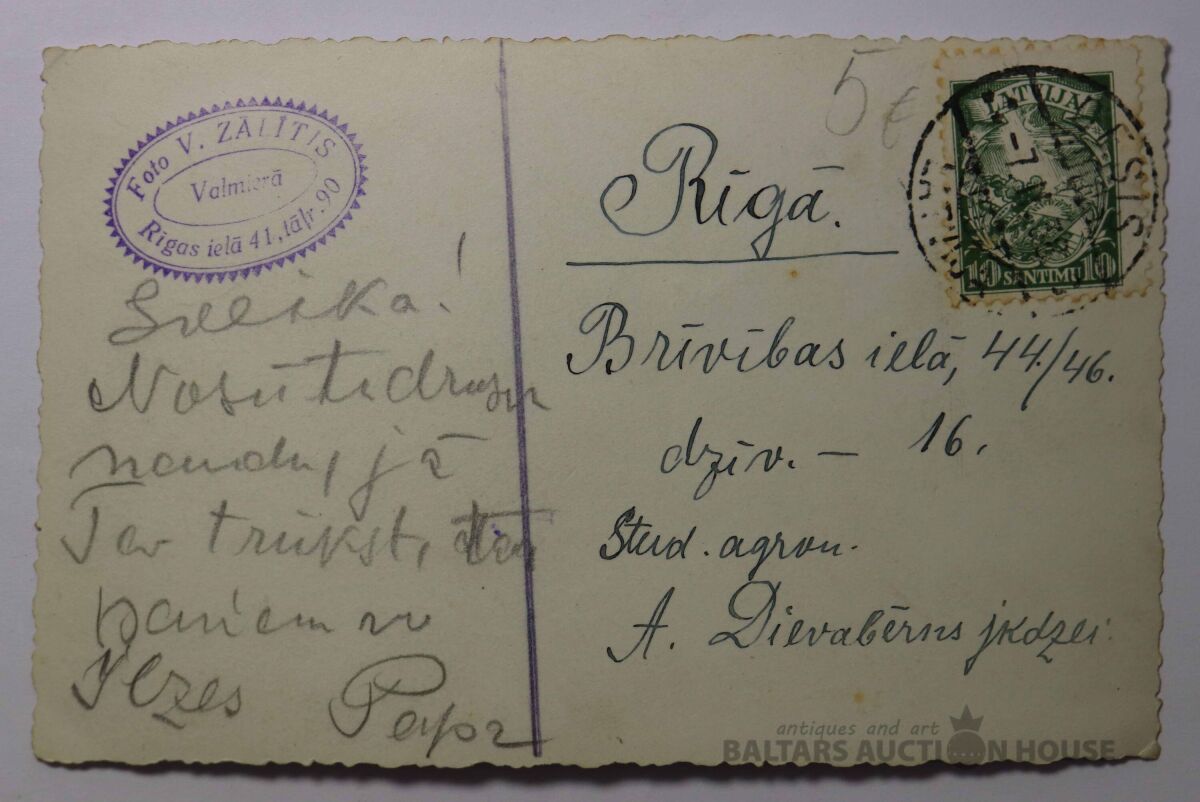 Foto V. ZĀLĪTIS
Valmierā
Rīgas ielā 41, tāļr. 90
Sveika!
Nosūtu drusku
naudu, jā
Tev trūkst, tad
paņem no
Ilzes
5 €
Rīgā.
Brīvības ielā, 44./46.
dzīv. — 16.
Stud. agron.
A. Dievabērns jkdzei
LATVIJA
10 SANTIMU 10
antiques and art
BALTARS AUCTION HOUSE